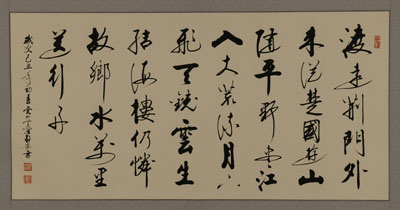 渡遠荊門外
来從楚國遊山
随平野尽江
入大荒流月下
飛天鏡雲生
结海樓仍憐
故鄉水萬里
送行舟
歲次己丑年初春